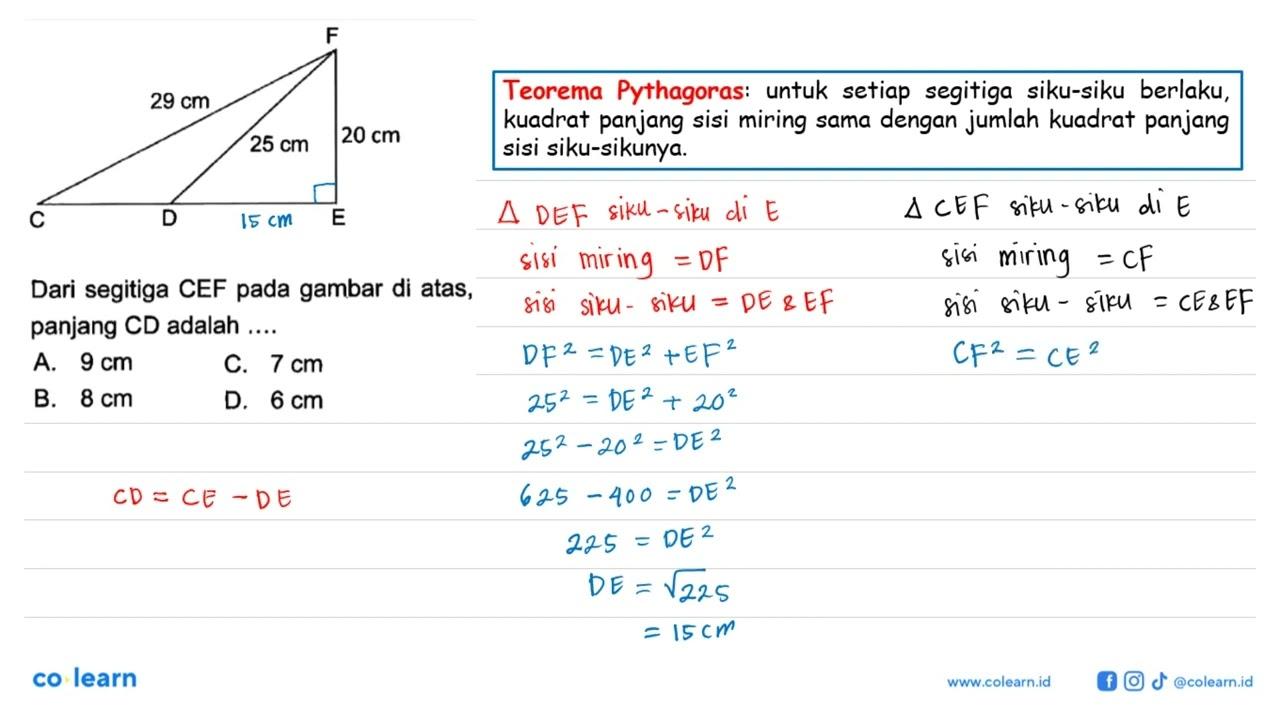 F
29 cm
25 cm
20 cm
C
D
15 cm
E
Dari segitiga CEF pada gambar di atas,
panjang CD adalah ....
A. 9 cm C. 7 cm
B. 8 cm D. 6 cm
CD = CE - DE
Teorema Pythagoras: untuk setiap segitiga siku-siku berlaku,
kuadrat panjang sisi miring sama dengan jumlah kuadrat panjang
sisi siku-sikunya.
Δ DEF siku-siku di E
sisi miring = DF
sisi siku-siku = DE & EF
DF² = DE² + EF²
25² = DE² + 20²
25² - 20² = DE²
625 - 400 = DE²
225 = DE²
DE = √225
= 15 cm
Δ CEF siku-siku di E
sisi miring = CF
sisi siku-siku = CE & EF
CF² = CE²
co learn
www.colearn.id
@colearn.id